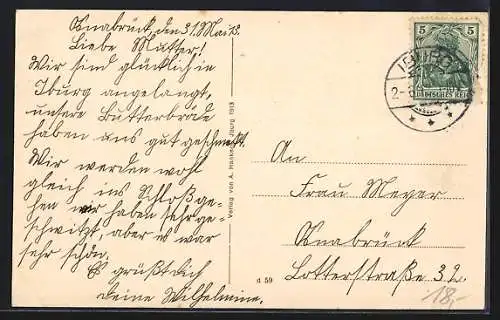 Osnabrück, den 31. Mai 13.
Liebe Mutter!
Wir sind glücklich in
Iburg angelangt,
unsere Butterbrode
haben uns gut geschmekt.
Wir werden wohl
gleich ins Schloß ge-
hen wir haben sehr ge-
schwitzt, aber es war
sehr schön.
Es grüßt dich
deine Wilhelmine.
Verlag von A. Iburg 1913
d 59
5 5
DEUTSCHES REICH
IBURG
2-
An
Frau Meyer
Osnabrück
Lotterstraße 32.
18,-